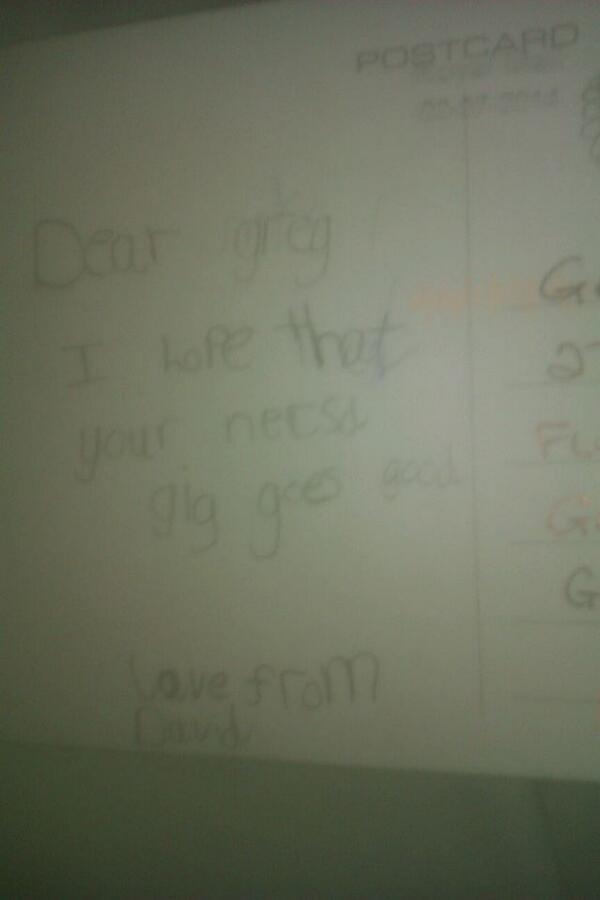 POSTCARD
Dear greg
I hope that
your necsd
gig goes good
Love from
David
G
2
Fl
G
G